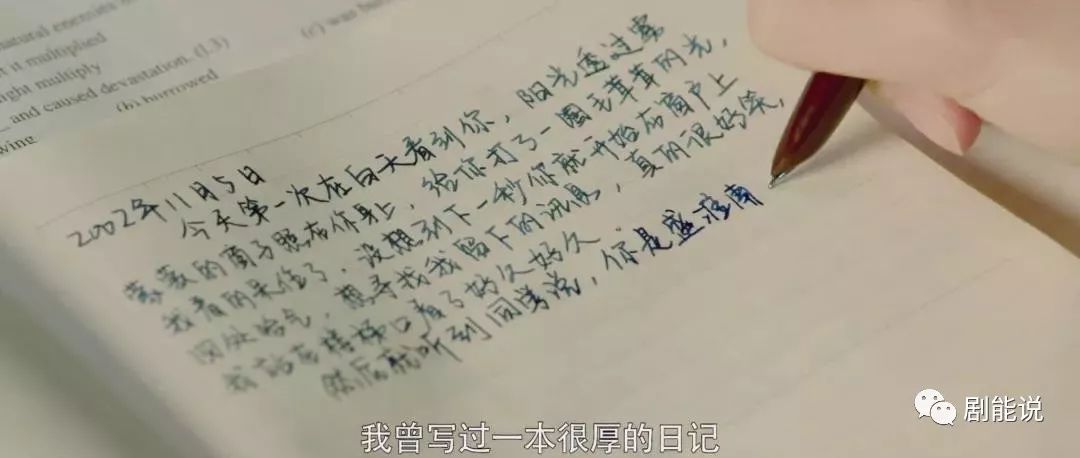 natural enemies
it multiplied
(c) was
ght multiply
and caused devastation. (l.3)
(b) borrowed
wing
2002年11月5日
今天第一次在白天看到你，阳光透过雾
蒙蒙的子照在你身上，给你打了一圈毛茸茸的光，
我看的呆住了，没想到下一秒你就开始在窗户上
四处哈气，想寻找我留下的讯息，真的很好笑，
我站在楼梯口看了好久好久．
然后我听到同学说，你是盛淮南
我曾写过一本很厚的日记
剧能说